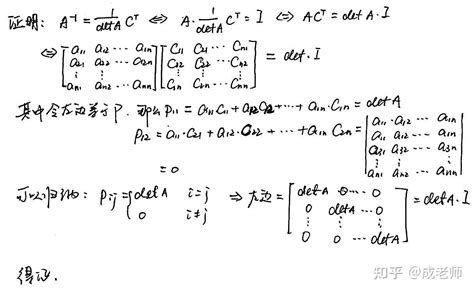 证明: A⁻¹ = 1/detA Cᵀ ⇔ A · 1/detA Cᵀ = I ⇔ ACᵀ = detA · I
⇔ [a₁₁ a₁₂ ⋯ a₁ₙ; a₂₁ a₂₂ ⋯ a₂ₙ; ⋮ ⋮; aₙ₁ aₙ₂ ⋯ aₙₙ] [C₁₁ C₂₁ ⋯ Cₙ₁; C₁₂ C₂₂ ⋯ Cₙ₂; ⋮ ⋮; C₁ₙ C₂ₙ ⋯ Cₙₙ] = det · I
其中令左边等于P, 那么 P₁₁ = a₁₁C₁₁ + a₁₂C₁₂ + ⋯ + a₁ₙ C₁ₙ = detA
P₁₂ = a₁₁ · C₂₁ + a₁₂ · C₂₂ + ⋯ + a₁ₙ C₂ₙ = |a₁₁ a₁₂ ⋯ a₁ₙ; a₁₁ a₁₂ ⋯ a₁ₙ; a₃₁ a₃₂ ⋯ a₃ₙ; ⋮ ⋮; aₙ₁ aₙ₂ ⋯ aₙₙ|
= 0
可以归纳: Pᵢⱼ = {detA i=j; 0 i≠j ⇒ 左边 = [detA 0 ⋯ 0; 0 detA ⋯ 0; ⋮ ⋮; 0 0 ⋯ detA] = detA · I
得证.
知乎 @成老师